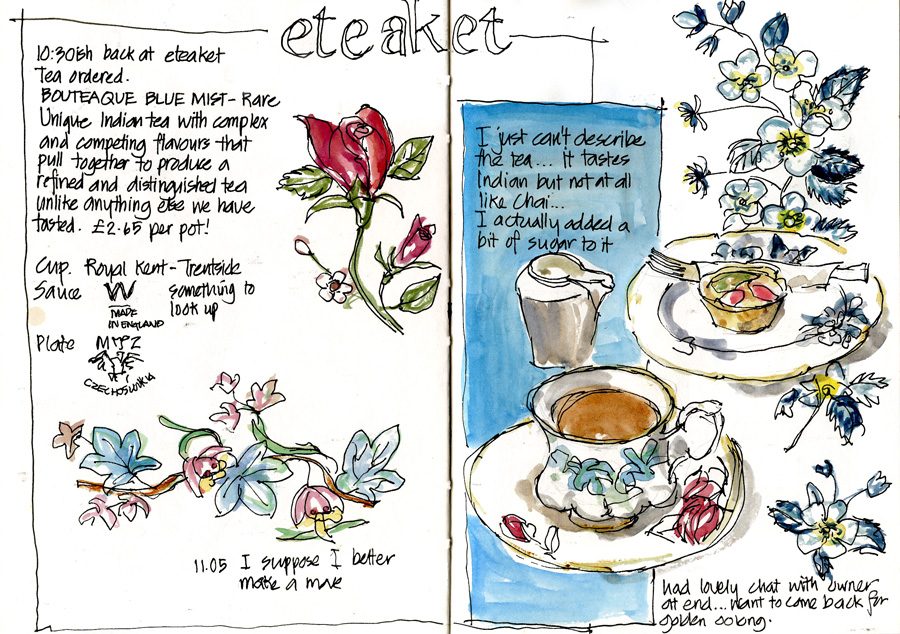 eteaket
10:30ish back at eteaket
tea ordered.
BOUTEAQUE BLUE MIST - Rare
Unique Indian tea with complex
and competing flavours that
pull together to produce a
refined and distinguished tea
unlike anything else we have
tasted. £2.65 per pot!
Cup. Royal Kent - Trentside
Sauce W something to
look up
MADE
IN ENGLAND
Plate M Z
CZECHOSLOVKIA
11.05 I suppose I better
make a move
I just can't describe
the tea... it tastes
Indian but not at all
like Chai...
I actually added a
bit of sugar to it
had lovely chat with owner
at end... want to come back for
golden oolong.